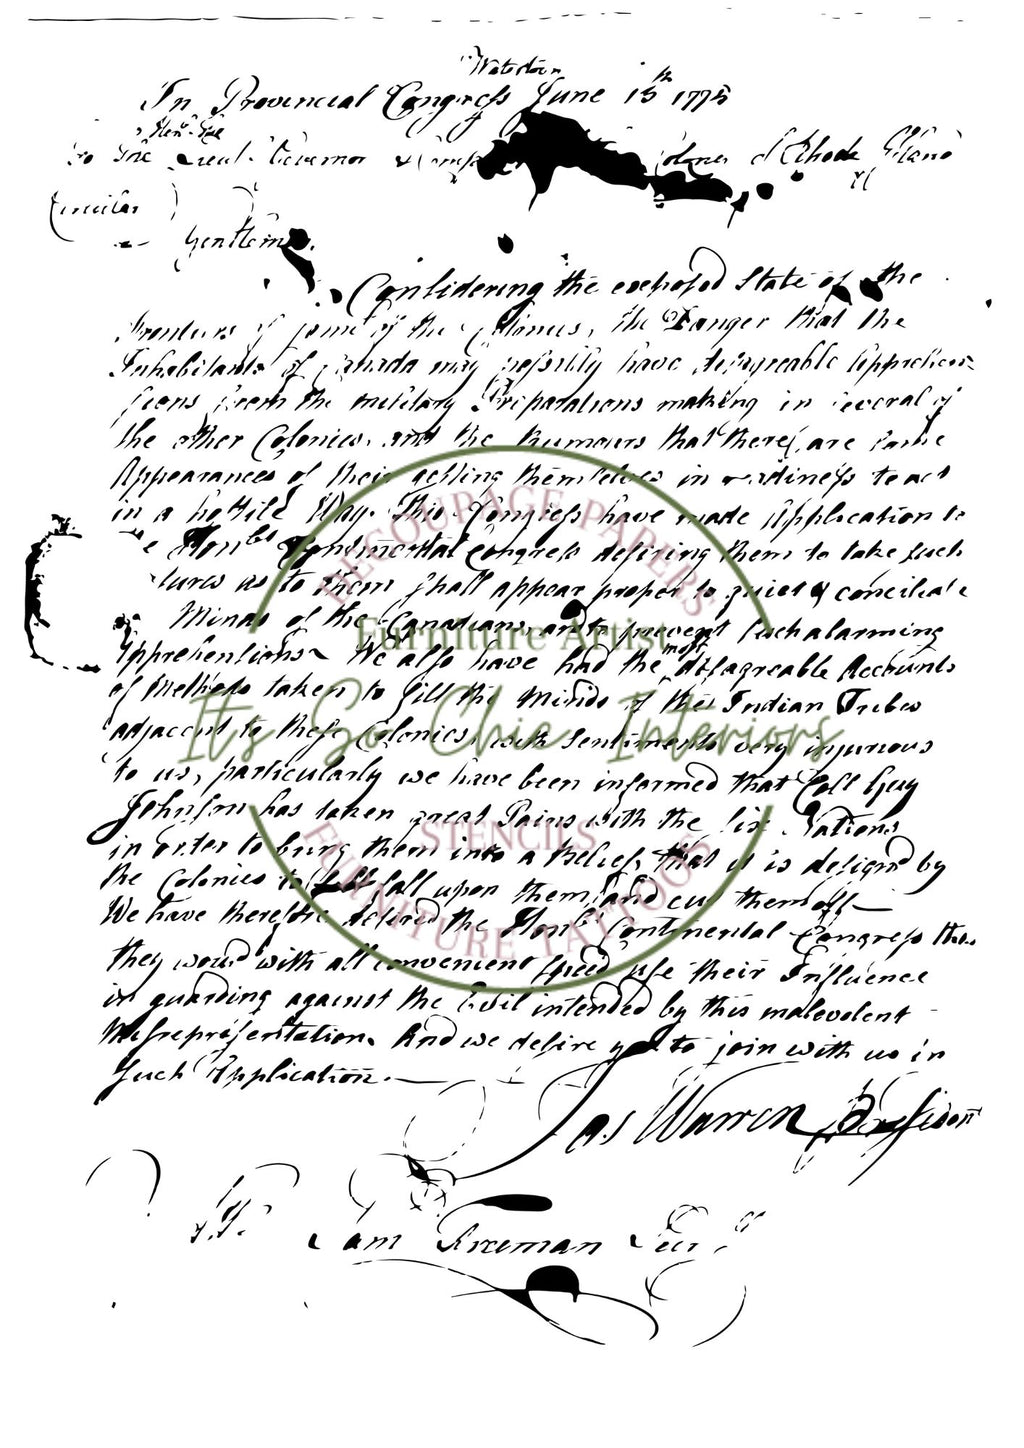 Watertown
In Provincial Congress June 15th 1775
To the Govenor & Comp Colony of Rhode Island
Circular
Gentlemen.
Considering the exposed State of the
Frontiers of some of the Colonies, the Danger that the
Inhabitants of Canada may possibly have disagreable Apprehen
sions from the military Preparations making in several of
the other Colonies, and the Rumours that there are some
Appearances of their getting themselves in readiness to act
in a hostile Way. This Congress have made Application to
e Honble Continental Congress desiring them to take such
sures as to them shall appear proper to quiet & conciliate
Minds of the Canadians, and to prevent such alarming
Apprehensions We also have had the most disagreable Accounts
of Methods taken to fill the Minds of the Indian Tribes
adjacent to these Colonies, with Sentiments very injurious
to us, particularly we have been informed that Coll Guy
Johnson has taken great Pains with the six Nations
in order to bring them into a Belief, that it is designd by
the Colonies to fall upon them, and cut them off—
We have therefore desired the Honble Continental Congress that
they would with all convenient speed use their Influence
in guarding against the Evil intended by this malevolent
Misrepresentation. And we desire you to join with us in
such Application.—
Jas Warren President
Sam Freeman Secy
DECOUPAGE PAPERS
Furniture Artist
It's So Chic Interiors
STENCILS
FURNITURE TATTOOS